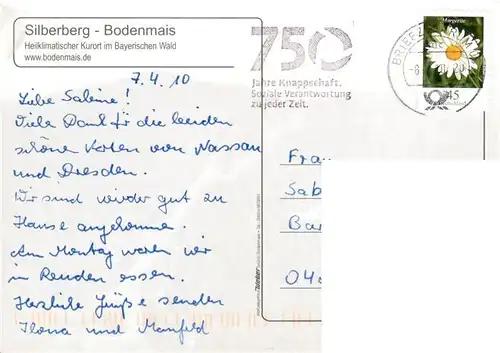 Silberberg - Bodenmais
Heilklimatischer Kurort im Bayerischen Wald
www.bodenmais.de
750
Jahre Knappschaft.
Soziale Verantwortung
zu jeder Zeit.
BRIEFZ
Margerite
45
Deutschland
7.4.10
Liebe Sabine!
Viele Dank für die beiden
schöne Karten von Nassau
und Dresden.
Wir sind wieder gut zu
Hause angekomme.
Am Montag waren wir
in essen.
Herzliche Grüße senden
Ilona und Manfeld
Frau
Sab
Bar
040